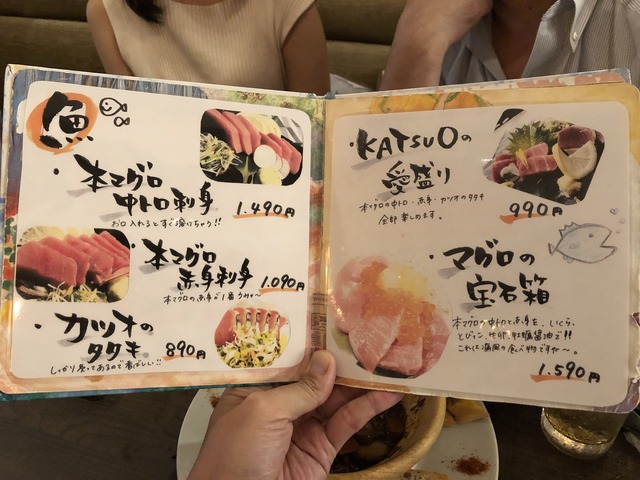 魚
・本マグロ
中トロ刺身
1.490円
お口入れるとすぐ溶けちゃう!!
・本マグロ
赤身刺身
1.090円
本マグロの赤身が1番うめぇ〜
・カツオの
タタキ
890円
しっかり炙ってあるので香ばしい!!
・KATSUOの
愛盛り
990円
本マグロの中トロ・赤身・カツオのタタキ
全部楽しめます。
・マグロの
宝石箱
本マグロの中トロと赤身を、いくら、
1.590円